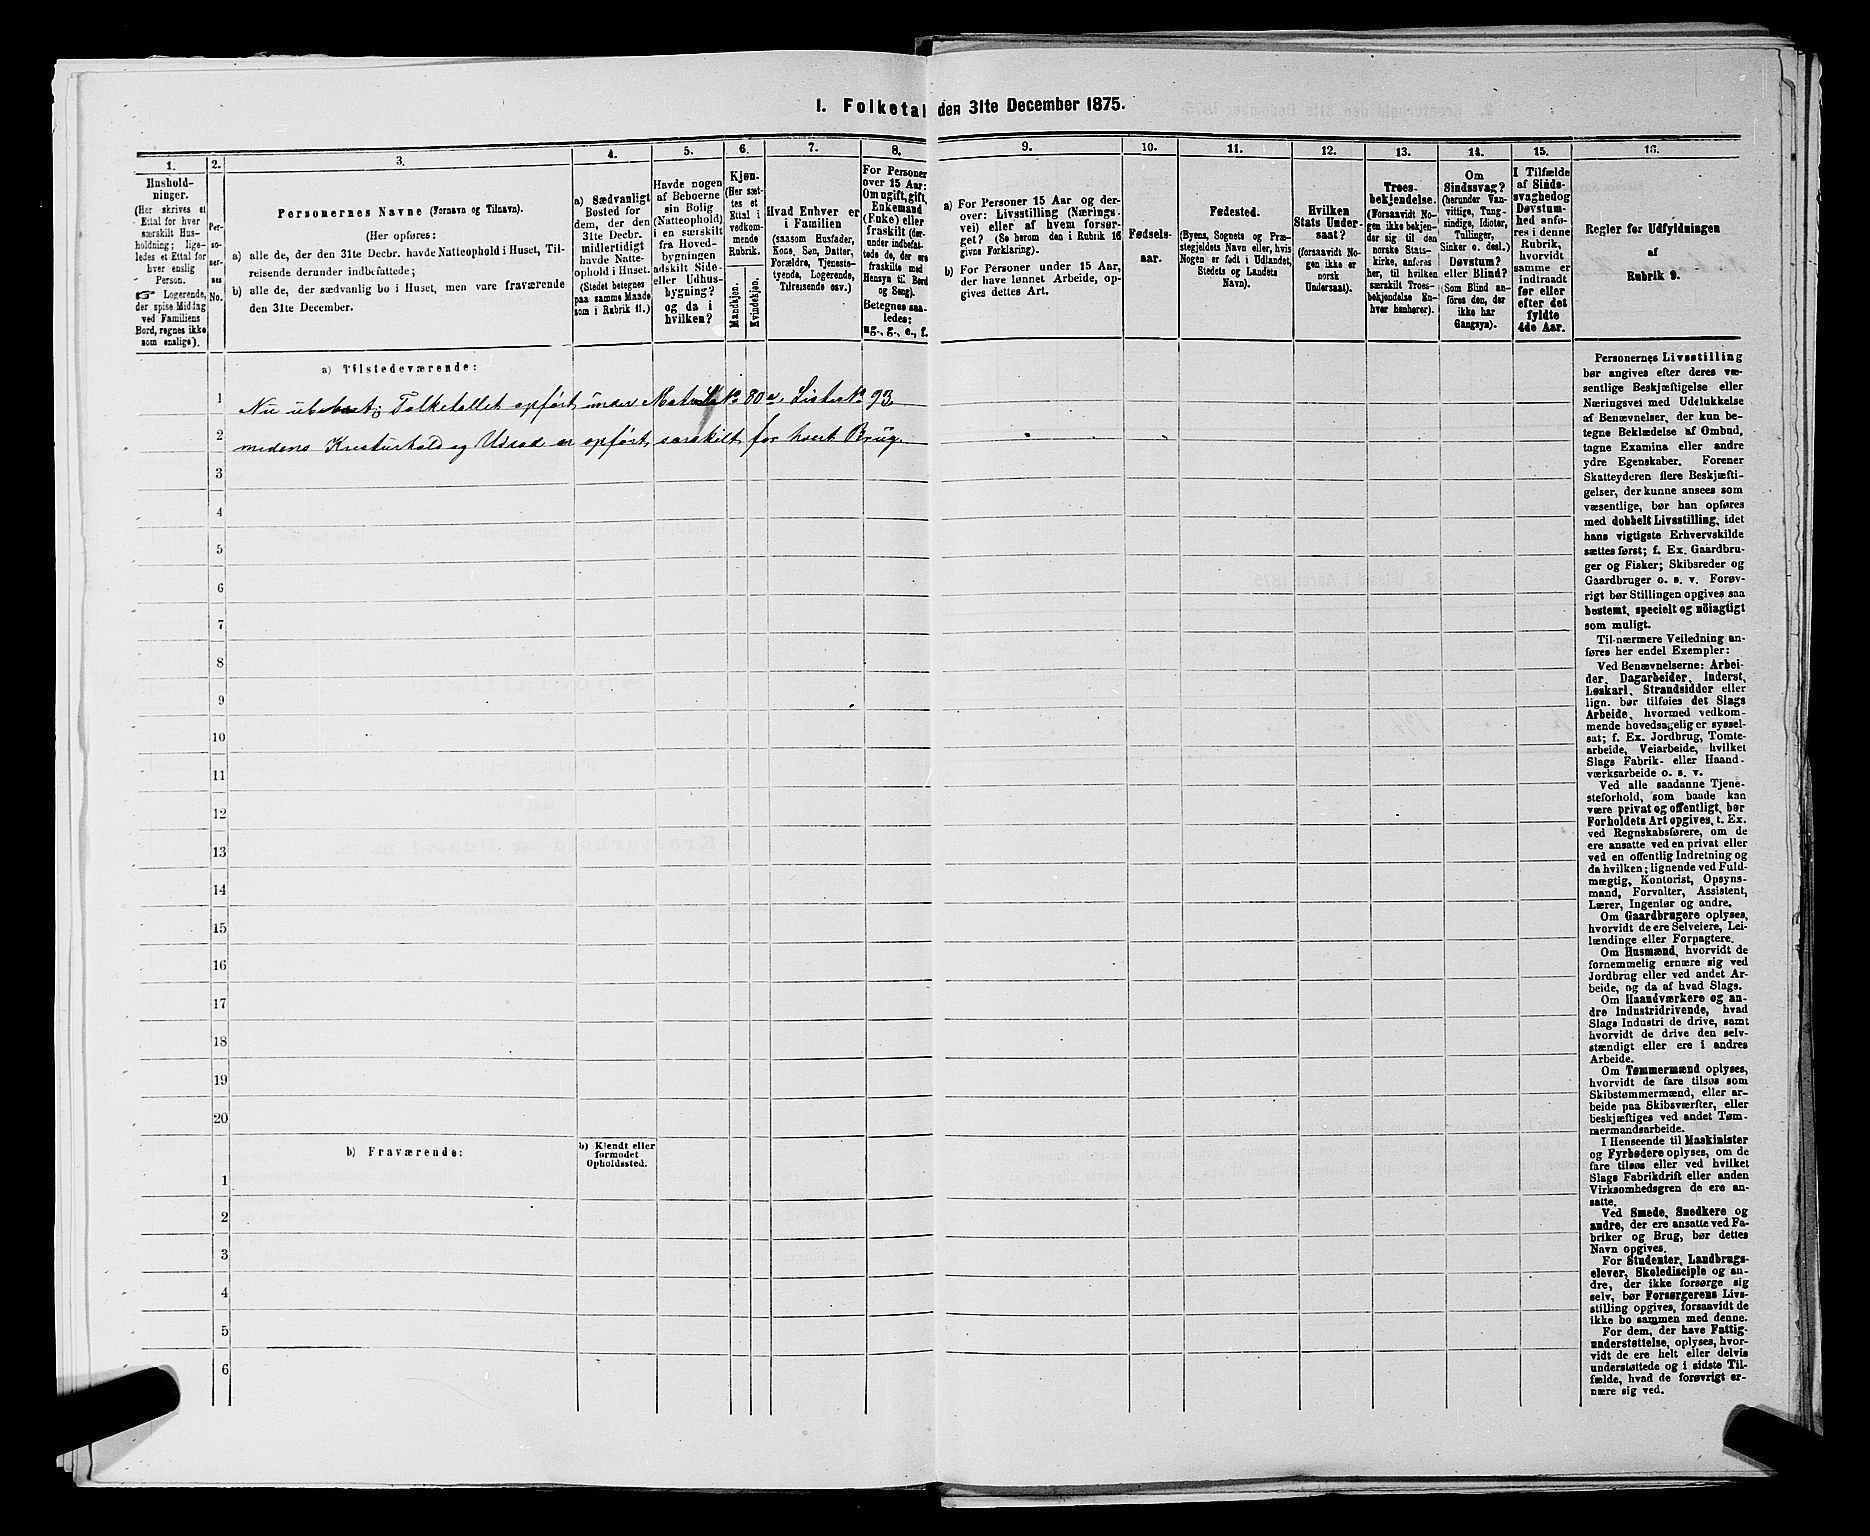 I. Folketal den 31te December 1875.
1.
Hushold-
ninger.
(Her skrives et
Ettal for hver
særskilt Hus-
holdning; lige-
ledes et Ettal for
hver enslig
Person.
☞ Logerende,
der spise Middag
ved Familiens
Bord, regnes ikke
som enslige).
2.
Per-
so-
ner-
nes
No.
3.
Personernes Navne (Fornavn og Tilnavn).
(Her opføres:
a) alle de, der den 31te Decbr. havde Natteophold i Huset, Til-
reisende derunder indbefattede;
b) alle de, der sædvanlig bo i Huset, men vare fraværende
den 31te December.
4.
a) Sædvanligt
Bosted for
dem, der den
31te Decbr.
midlertidigt
havde Natte-
ophold i Huset.
(Stedet betegnes
paa samme Maade
som i Rubrik 11.)
5.
Havde nogen
af Beboerne
sin Bolig
(Natteophold)
i en særskilt
fra Hoved-
bygningen
adskilt Side-
eller Udhus-
bygning?
og da i
hvilken?
6.
Kjøn.
(Her sæt-
tes et
Ettal i
vedkom-
mende
Rubrik.
Mandkjøn.
Kvindekjøn.
7.
Hvad Enhver er
i Familien
(saasom Husfader,
Kone, Søn, Datter,
Forældre, Tjeneste-
tyende, Logerende,
Tilreisende osv.)
8.
For Personer
over 15 Aar:
Om ugift, gift,
Enkemand
(Enke) eller
fraskilt (der-
under indbefat-
tede de, der ere
fraskilte med
Hensyn til Bord
og Seng).
Betegnes saa-
ledes:
ug., g., e., f.
9.
a) For Personer 15 Aar og der-
over: Livsstilling (Nærings-
vei) eller af hvem forsør-
get? (Se herom den i Rubrik 16
givne Forklaring).
b) For Personer under 15 Aar,
der have lønnet Arbeide, op-
gives dettes Art.
10.
Fødsels-
aar.
11.
Fødested.
(Byens, Sognets og Præ-
stegjeldets Navn eller, hvis
Nogen er født i Udlandet,
Stedets og Landets
Navn).
12.
Hvilken
Stats Under-
saat?
(forsaavidt No-
gen ikke er
norsk
Undersaat).
13.
Troes-
bekjendelse.
(Forsaavidt No-
gen ikke bekjen-
der sig til den
norske Stats-
kirke, anføres
her, til hvilken
særskilt Troes-
bekjendelse En-
hver henhører).
14.
Om
Sindssvag?
(herunder Van-
vittige, Tung-
sindige, Idioter,
Tullinger,
Sinker o. desl.)
Døvstum?
eller Blind?
(Som Blind an-
føres den, der
ikke har
Gangsyn).
15.
I Tilfælde
af Sinds-
svaghed og
Døvstum-
hed anfø-
res i denne
Rubrik,
hvorvidt
samme er
indtraadt
før eller
efter det
fyldte
4de Aar.
16.
Regler for Udfyldningen
af
Rubrik 9.
a) Tilstedeværende:
1 Nu ubeboet; Folketallet opført under Matr. No 80a, Liste No 93.
2 medens Kreaturhold og Udsæd er opført særskilt for hvert Brug.
3
4
5
6
7
8
9
10
11
12
13
14
15
16
17
18
19
20
b) Fraværende:
b) Kjendt eller
formodet
Opholdssted.
1
2
3
4
5
6
Personernes Livsstilling
bør angives efter deres væ-
sentlige Beskjæftigelse eller
Næringsvei med Udelukkelse
af Benævnelser, der kun be-
tegne Beklædelse af Ombud,
tagne Examina eller andre
ydre Egenskaber. Forener
Skatteyderen flere Beskjæfti-
gelser, der kunne ansees som
væsentlige, bør han opføres
med dobbelt Livsstilling, idet
hans vigtigste Erhvervskilde
sættes først; f. Ex. Gaardbru-
ger og Fisker; Skibsreder og
Gaardbruger o. s. v. Forøv-
rigt bør Stillingen opgives saa
bestemt, specielt og nöiagtigt
som muligt.
Til nærmere Veiledning an-
føres her endel Exempler:
Ved Benævnelserne: Arbei-
der, Dagarbeider, Inderst,
Løskarl, Strandsidder eller
lign. bør tilføies det Slags
Arbeide, hvormed vedkom-
mende hovedsagelig er syssel-
sat; f. Ex. Jordbrug, Tomte-
arbeide, Veiarbeide, hvilket
Slags Fabrik- eller Haand-
værksarbeide o. s. v.
Ved alle saadanne Tjene-
steforhold, som baade kan
være privat og offentligt, bør
Forholdets Art opgives, t. Ex.
ved Regnskabsførere, om de
ere ansatte ved en privat eller
ved en offentlig Indretning og
da hvilken; lignende ved Fuld-
mægtig, Kontorist, Opsyns-
mand, Forvalter, Assistent,
Lærer, Ingeniør og andre.
Om Gaardbrugere oplyses,
hvorvidt de ere Selveiere, Lei-
lændinge eller Forpagtere.
Om Husmænd, hvorvidt de
fornemmelig ernære sig ved
Jordbrug eller ved andet Ar-
beide, og da af hvad Slags.
Om Haandværkere og an-
dre Industridrivende, hvad
Slags Industri de drive, samt
hvorvidt de drive den selv-
stændigt eller ere i andres
Arbeide.
Om Tømmermænd oplyses,
hvorvidt de fare tilsøs som
Skibstømmermænd, eller ar-
beide paa Skibsværfter, eller
beskjæftiges ved andet Tøm-
mermandsarbeide.
I Henseende til Maskinister
og Fyrbødere oplyses, om de
fare tilsøs eller ved hvilket
Slags Fabrikdrift eller anden
Virksomhedsgren de ere an-
satte.
Ved Smede, Snedkere og
andre, der ere ansatte ved Fa-
briker og Brug, bør dettes
Navn opgives.
For Studenter, Landbrugs-
elever, Skoledisciple og an-
dre, der ikke forsørge sig
selv, bør Forsørgerens Livs-
stilling opgives, forsaavidt de
ikke bo sammen med denne.
For dem, der have Fattig-
understøttelse, oplyses, hvor-
vidt de ere helt eller delvis
understøttede og i sidste Til-
fælde, hvad de forøvrigt er-
nære sig ved.